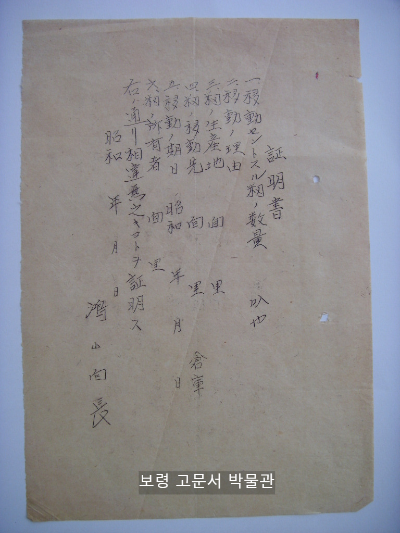 証明書
一、移動セントスル籾ノ数量 叺也
二、移動ノ理由
三、籾ノ生産地 面 里
四、籾ノ移動先 面 里 倉庫
五、移動ノ期日 昭和 年 月 日
六、籾ノ所有者 面 里
右ノ通リ相違無之キコトヲ証明ス
昭和 年 月 日
鴻山面長
보령 고문서 박물관